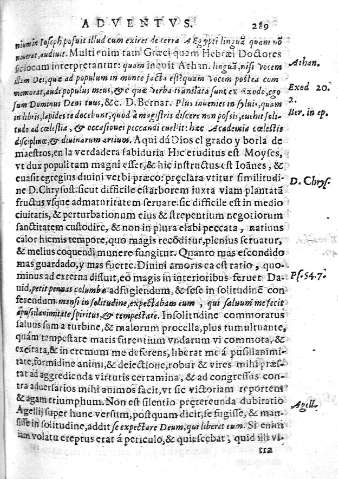 ADVENTVS. 289
nium in Ioseph posuit illud cum exiret de terra Aegypti linguā quam nō
nouerat, audiuit. Multi enim tam Græci quam Hebræi Doctores
sic locum interpretantur: quam inquit Athan. linguā, nisi vocem
illam Dei, quæ ad populum in monte facta est? quam vocem postea com
memorat, audi populus meus, &c. quæ verba translata sunt ex Exodo, ego
sum Dominus Deus tuus, &c. D. Bernar. Plus inuenies in syluis, quam
in libris, lapides te docebunt, quod à magistris discere non possis, euehit soli-
tudo ad cælestia, & occasiones peccandi excludit: hæc Academia cælestis
disciplinæ, & diuinarum artium. Aqui dà Dios el grado y borla de
maestros, en la verdadera sabiduria Hic eruditus est Moyses,
vt dux populi tam magni esset, & hic instructus est Ioānes, &
euasit egregius diuini verbi præco: præclara vtitur similitudi-
ne D. Chrysost. sicut difficile est arborem iuxta viam plantatā
fructus vsque ad maturitatem seruare: sic difficile est in medio
ciuitatis, & perturbationum eius & strepentium negotiorum
sanctitatem custodire, & non in plura elabi peccata, natiuus
calor hiemis tempore, quo magis recōditur, plenius seruatur,
& melius coquendi munere fungitur. Quanto mas escondido
mas guardado, y mas fuerte. Diuini amoris ea est ratio, quo-
minus ad externa distrait, eò magis in interioribus feruet Da-
uid, petit pennas columbæ ad fugiendum, & sese in solitudinē con
ferendum mansi in solitudine, expectabam eum, qui saluum me fecit
à pusilanimitate spiritus, & tempestate. In solitudine commoratus
saluus sum à turbine, & malorum procella, plus tumultuante,
quàm tempestate maris furentium vndarum vi commota, &
excitata, & in eremum me deferens, liberat me à pusilanimi-
tate, formidine animi, & deiectione, robur & vires mihi præs-
tat ad aggredienda virtutis certamina, & ad congressus con-
tra aduersarios mihi animos facit, vt sic victoriam reportem
& agam triumphum. Non est silentio prætereunda dubitatio
Agellij super hunc versum, postquam dicit, se fugisse, & man-
sisse in solitudine, addit se expectare Deum, qui liberet eum. Si enim
iam volatu ereptus erat à periculo, & quiescebat, quid illi vi-
Athan.
Exod 20.
2.
Ber. in ep.
D. Chrys.
Ps. 54. 7.
Agell.